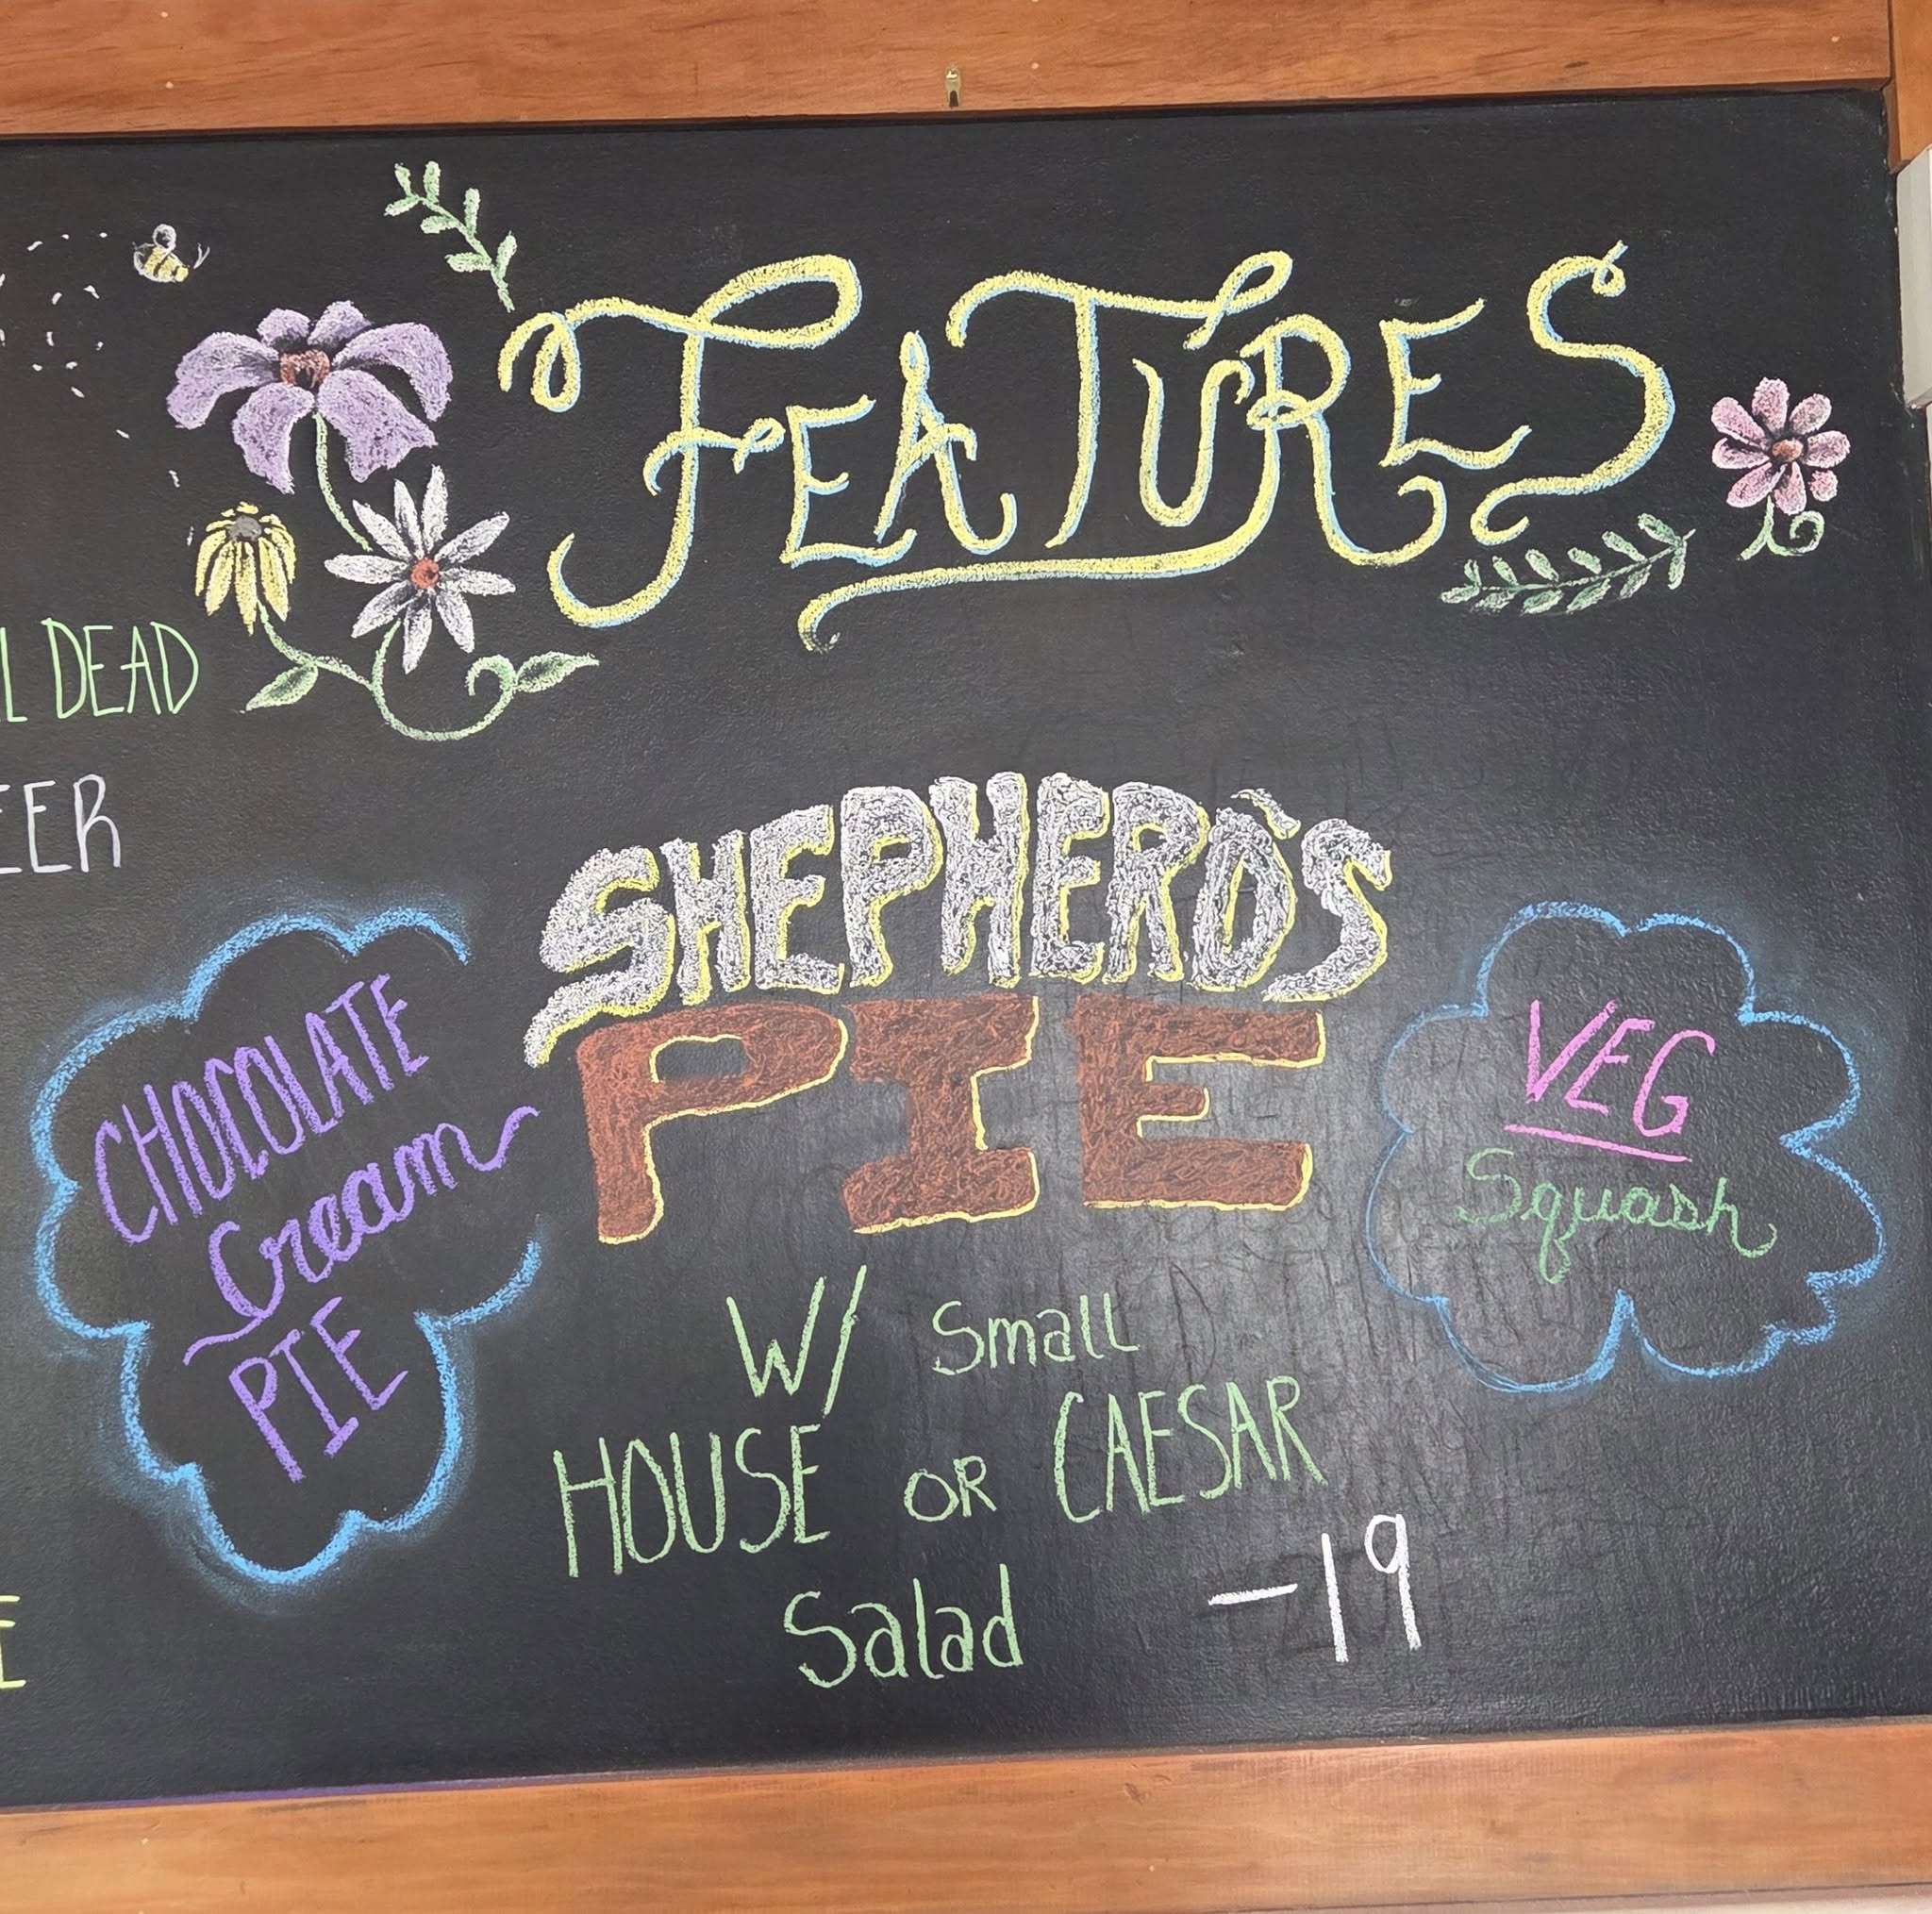 FEATURES
L DEAD
EER
SHEPHERD'S
PIE
CHOCOLATE
Cream
PIE
VEG
Squash
W/ Small
HOUSE OR CAESAR
Salad -19
E